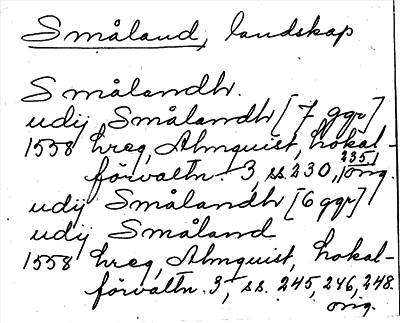 Småland, landskap
Smålandh.
udij Smålandh [7 ggr]
1558 hreg, Almquist, Lokal-
förvaltn. 3, ss. 230, 235, orig.
udij Smålandh [6 ggr]
udij Småland
1558 hreg, Almquist, Lokal-
förvaltn. 3, ss. 245, 246, 248.
orig.